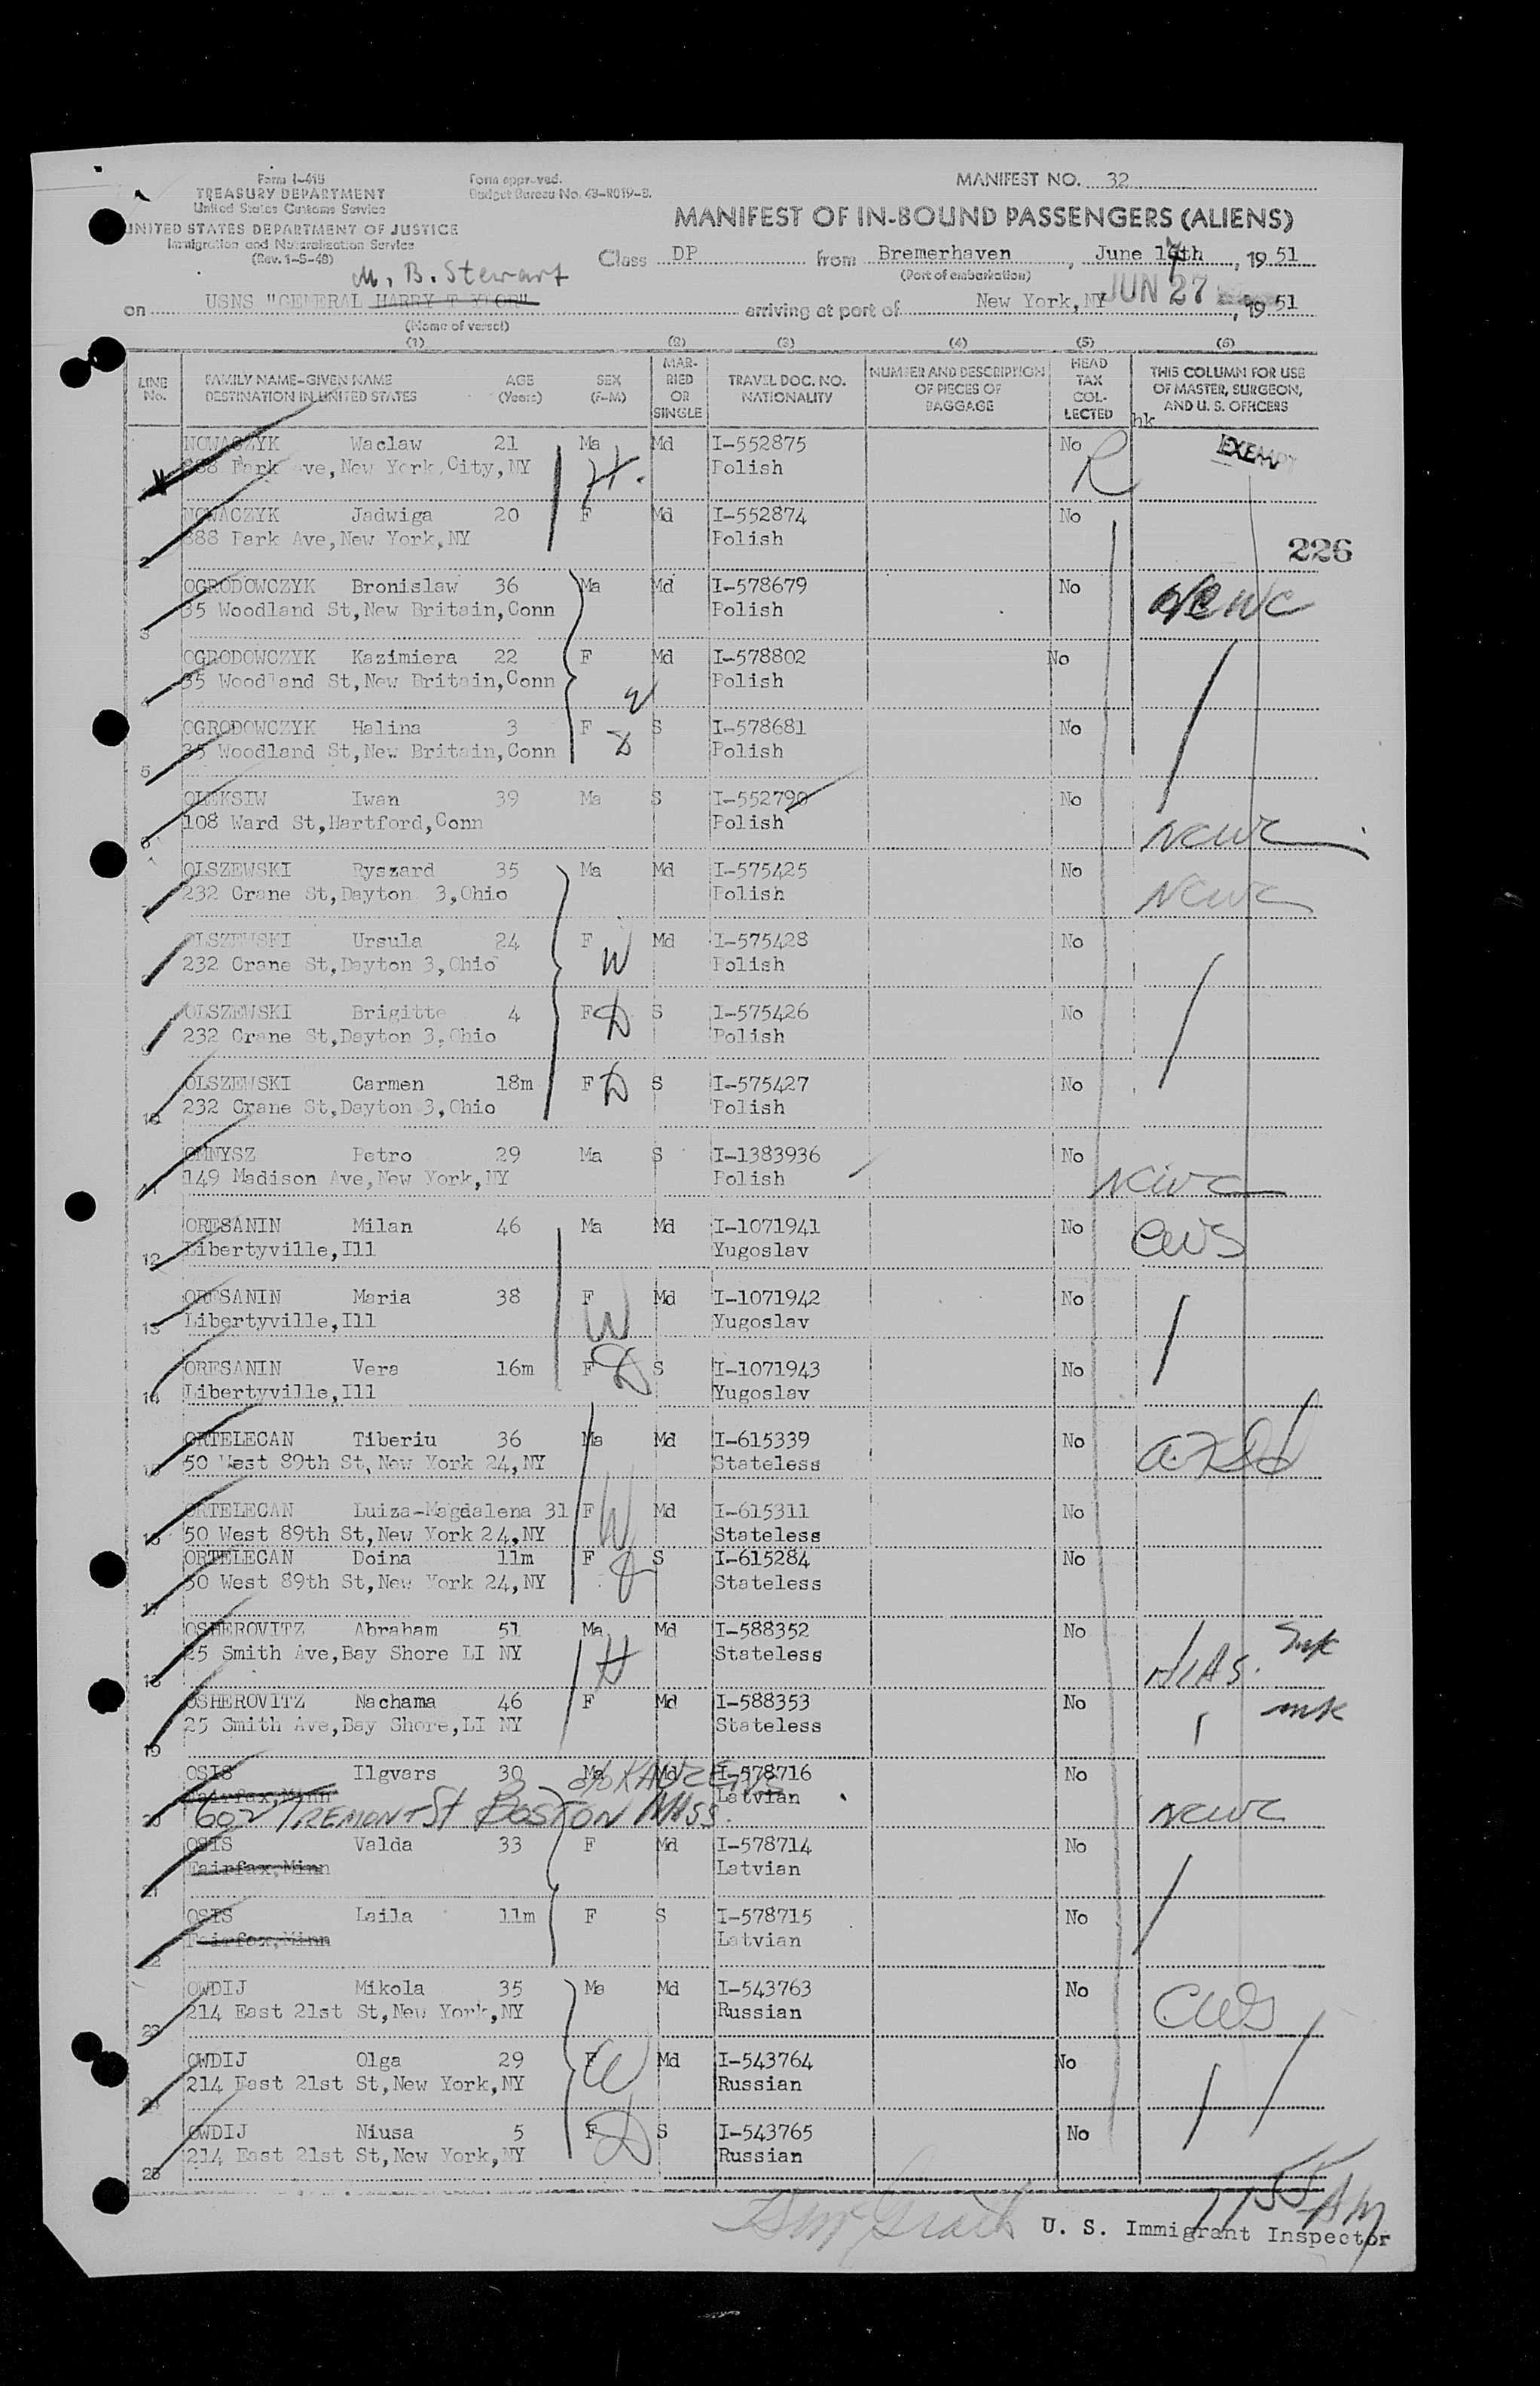 Form I-415
TREASURY DEPARTMENT
United States Customs Service
UNITED STATES DEPARTMENT OF JUSTICE
Immigration and Naturalization Service
(Rev. 1-5-48)
Form approved.
Budget Bureau No. 43-R019-3.
MANIFEST NO. 32
MANIFEST OF IN-BOUND PASSENGERS (ALIENS)
Class DP from Bremerhaven, June 17th, 1951
(Port of embarkation)
M. B. Stewart
on USNS "GENERAL HARRY TAYLOR" arriving at port of New York, NY JUN 27, 1951
(Name of vessel)
(1) (2) (3) (4) (5) (6)
LINE No. FAMILY NAME-GIVEN NAME DESTINATION IN UNITED STATES AGE (Years) SEX (F-M) MARRIED OR SINGLE TRAVEL DOC. NO. NATIONALITY NUMBER AND DESCRIPTION OF PIECES OF BAGGAGE HEAD TAX COLLECTED THIS COLUMN FOR USE OF MASTER, SURGEON, AND U. S. OFFICERS
hk
NOWACZYK Waclaw 21 Ma Md I-552875 No EXEMPT
888 Park Ave, New York City, NY H. Polish R
NOWACZYK Jadwiga 20 F Md I-552874 No
2 888 Park Ave, New York, NY Polish 226
OGRODOWCZYK Bronislaw 36 Ma Md I-578679 No NCWC
3 35 Woodland St, New Britain, Conn Polish
OGRODOWCZYK Kazimiera 22 F Md I-578802 No
4 35 Woodland St, New Britain, Conn W Polish
OGRODOWCZYK Halina 3 F D S I-578681 No
5 35 Woodland St, New Britain, Conn Polish
OLEKSIW Iwan 39 Ma S I-552790 No
6 108 Ward St, Hartford, Conn Polish NCWC
OLSZEWSKI Ryszard 35 Ma Md I-575425 No
7 232 Crane St, Dayton 3, Ohio Polish NCWC
OLSZEWSKI Ursula 24 F W Md I-575428 No
8 232 Crane St, Dayton 3, Ohio Polish
OLSZEWSKI Brigitte 4 F D S I-575426 No
9 232 Crane St, Dayton 3, Ohio Polish
OLSZEWSKI Carmen 18m F D S I-575427 No
10 232 Crane St, Dayton 3, Ohio Polish
OMNYSZ Petro 29 Ma S I-1383936 No
11 149 Madison Ave, New York, NY Polish NCWC
ORESANIN Milan 46 Ma Md I-1071941 No CWS
12 Libertyville, Ill Yugoslav
ORESANIN Maria 38 F W Md I-1071942 No
13 Libertyville, Ill Yugoslav
ORESANIN Vera 16m F D S I-1071943 No
14 Libertyville, Ill Yugoslav
ORTELECAN Tiberiu 36 Ma Md I-615339 No
15 50 West 89th St, New York 24, NY Stateless
ORTELECAN Luiza-Magdalena 31 F W Md I-615311 No
16 50 West 89th St, New York 24, NY Stateless
ORTELECAN Doina 11m F D S I-615284 No
17 50 West 89th St, New York 24, NY Stateless
OSHEROVITZ Abraham 51 Ma Md I-588352 No
18 25 Smith Ave, Bay Shore LI NY H Stateless HIAS.
OSHEROVITZ Nachama 46 F Md I-588353 No
19 25 Smith Ave, Bay Shore, LI NY Stateless
OSIS Ilgvars 30 Ma Md I-578716 No
Fairfax, Minn Latvian
20 602 TREMONT St BOSTON MASS. NCWC
OSIS Valda 33 F Md I-578714 No
21 Fairfax, Minn Latvian
OSIS Laila 11m F S I-578715 No
22 Fairfax, Minn Latvian
OWDIJ Mikola 35 Ma Md I-543763 No
23 214 East 21st St, New York, NY Russian CWS
OWDIJ Olga 29 F W Md I-543764 No
24 214 East 21st St, New York, NY Russian
OWDIJ Niusa 5 F D S I-543765 No
25 214 East 21st St, New York, NY Russian
1155 AM
U. S. Immigrant Inspector